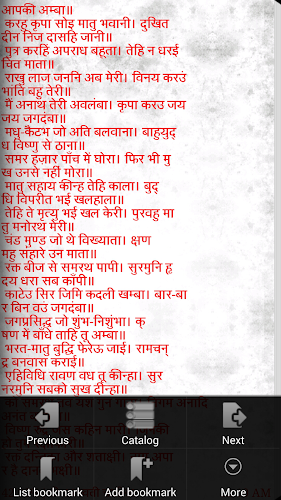 आपकी अम्बा॥
करहु कृपा सोइ मातु भवानी। दुखित
दीन निज दासहि जानी॥
पुत्र करहिं अपराध बहूता। तेहि न धरई
चित माता॥
राखु लाज जननि अब मेरी। विनय करउं
भांति बहु तेरी॥
मैं अनाथ तेरी अवलंबा। कृपा करउ जय
जय जगदंबा॥
मधु-कैटभ जो अति बलवाना। बाहुयुद्
ध विष्णु से ठाना॥
समर हजार पाँच में घोरा। फिर भी मु
ख उनसे नहीं मोरा॥
मातु सहाय कीन्ह तेहि काला। बुद्
धि विपरीत भई खलहाला॥
तेहि ते मृत्यु भई खल केरी। पुरवहु मा
तु मनोरथ मेरी॥
चंड मुण्ड जो थे विख्याता। क्षण
महु संहारे उन माता॥
रक्त बीज से समरथ पापी। सुरमुनि हृ
दय धरा सब काँपी॥
काटेउ सिर जिमि कदली खम्बा। बार-बा
र बिन वउं जगदंबा॥
जगप्रसिद्ध जो शुंभ-निशुंभा। क्
षण में बाँधे ताहि तू अम्बा॥
भरत-मातु बुद्धि फेरेऊ जाई। रामचन्
द्र बनवास कराई॥
एहिविधि रावण वध तू कीन्हा। सुर
नरमुनि सबको सुख दीन्हा॥
Previous Catalog Next
List bookmark Add bookmark More